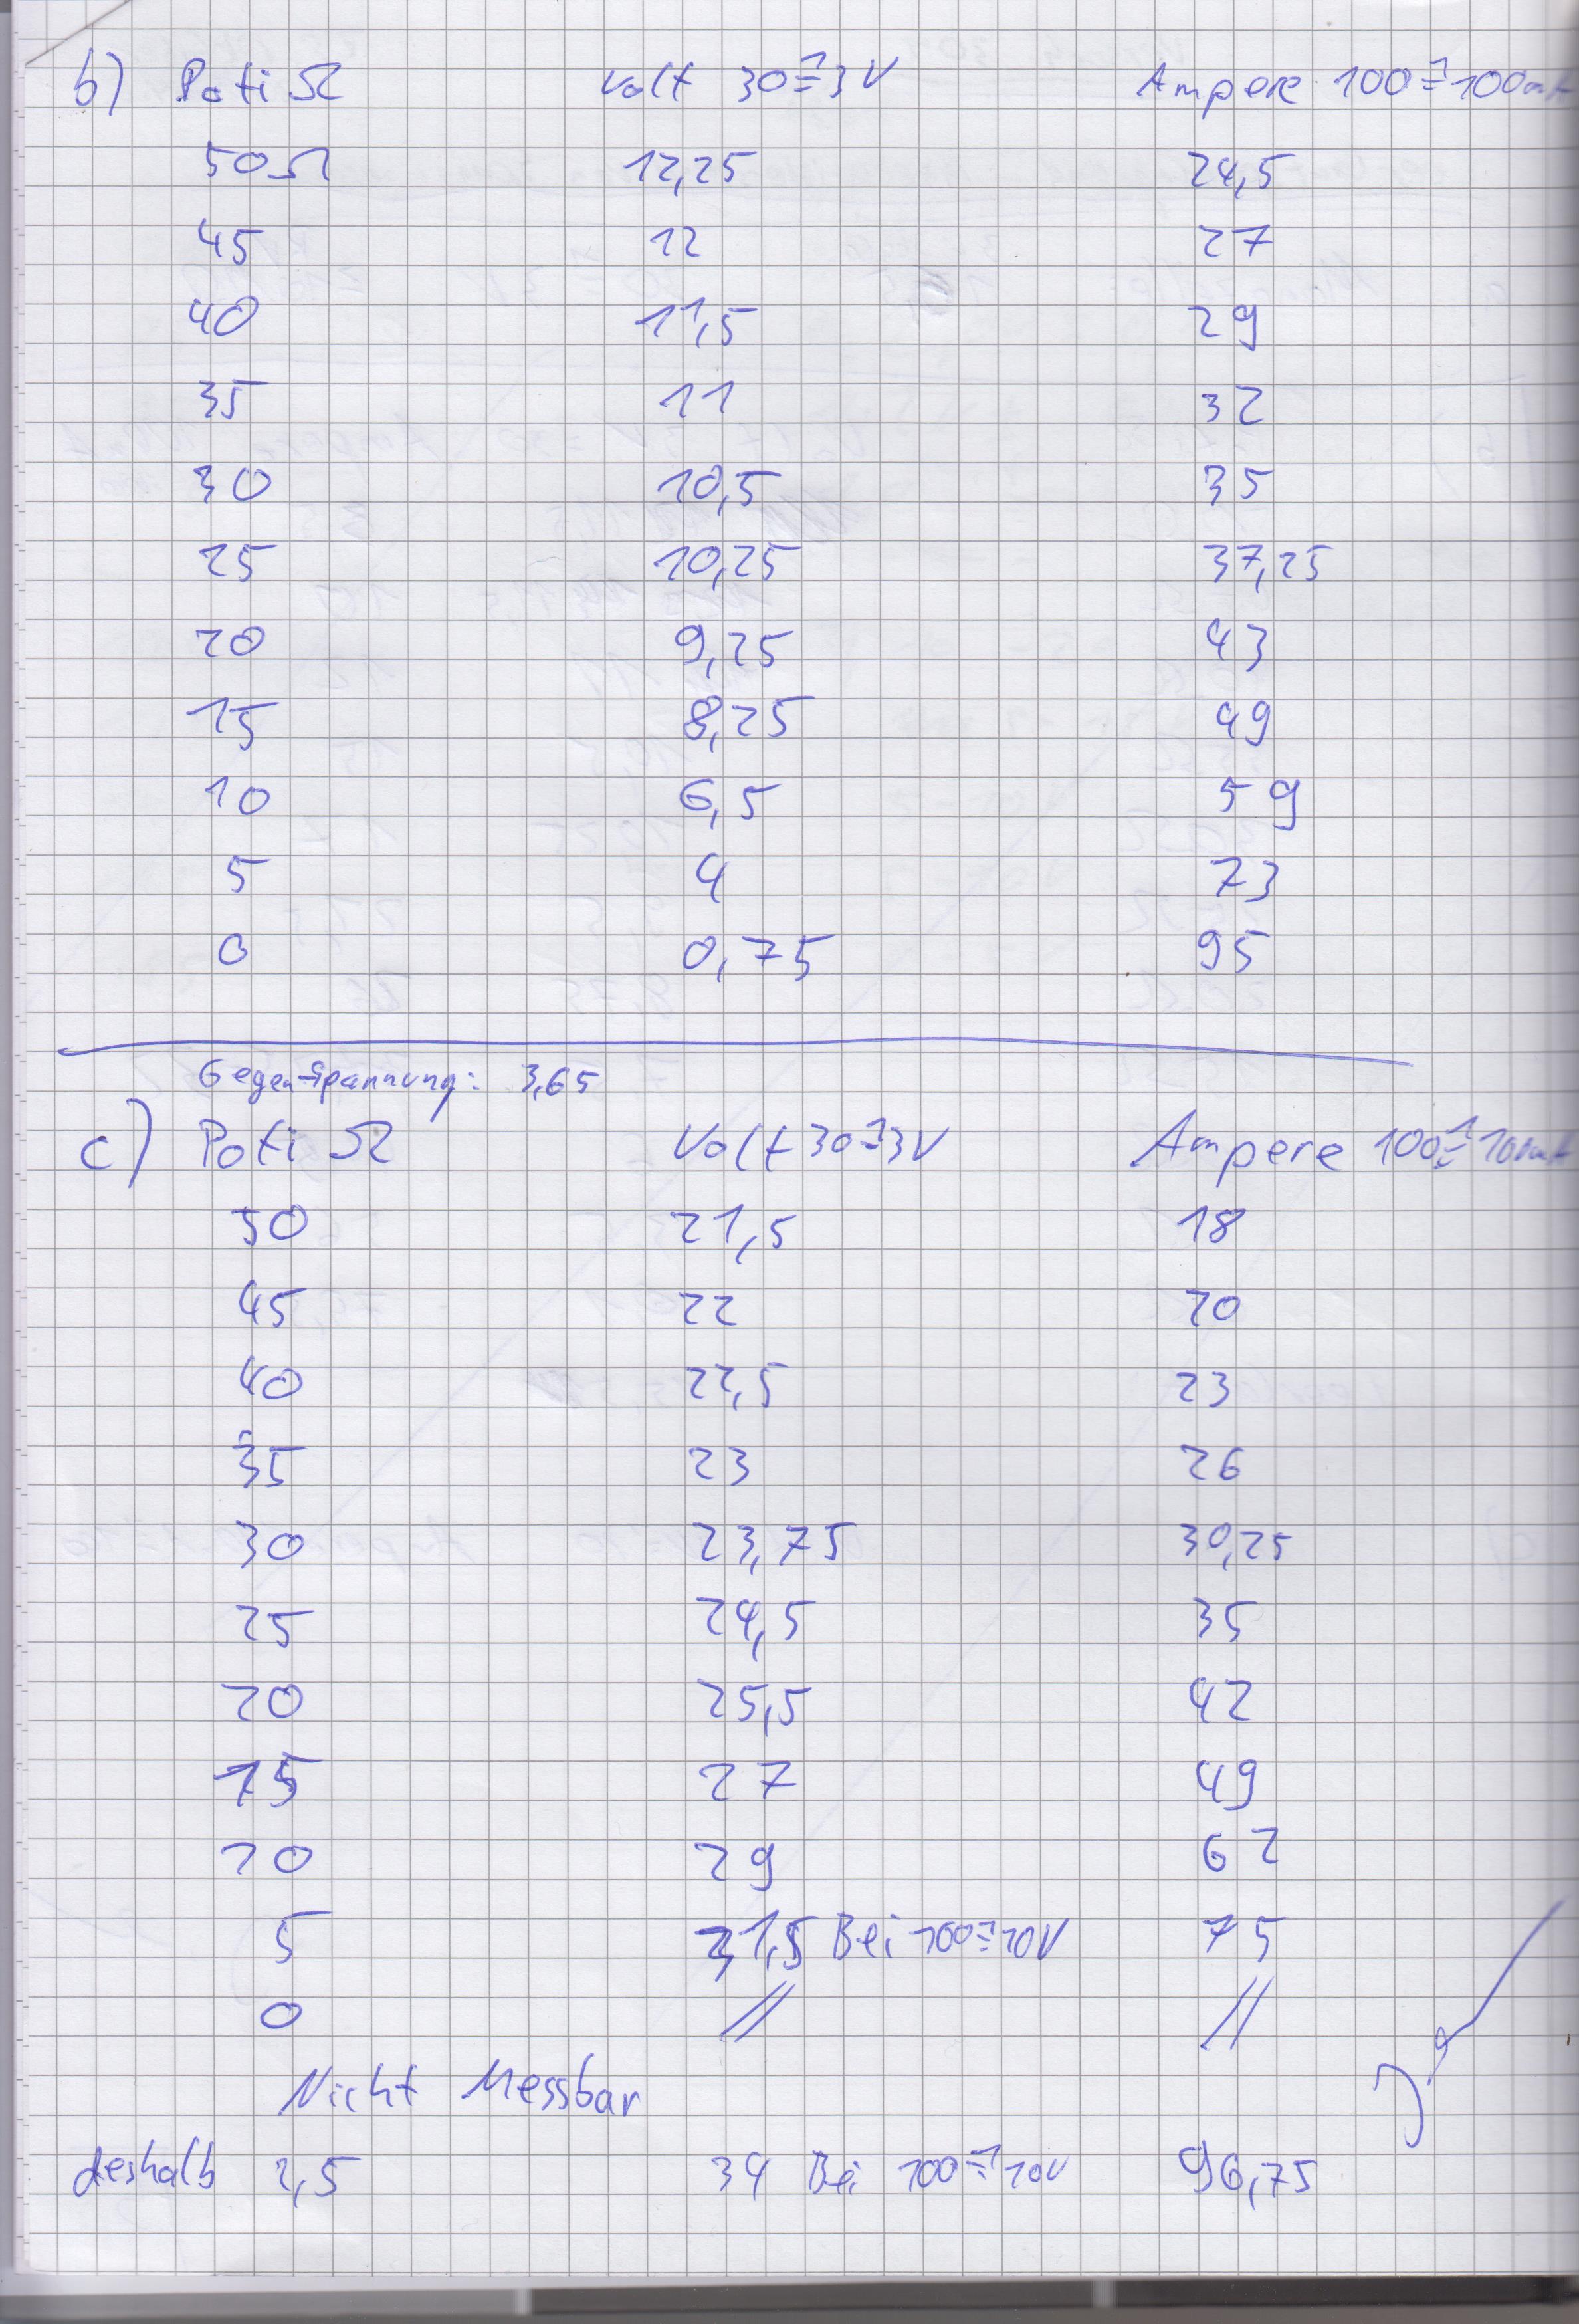 b) Poti Ω Volt 30≙3V Ampere 100≙100mA
50Ω 12,25 24,5
45 12 27
40 11,5 29
35 11 32
30 10,5 35
25 10,25 37,25
20 9,25 43
15 8,25 49
10 6,5 59
5 4 73
0 0,75 95
Gegenspannung: 3,65
c) Poti Ω Volt 30≙3V Ampere 100≙100mA
50 21,5 18
45 22 20
40 22,5 23
35 23 26
30 23,75 30,25
25 24,5 35
20 25,5 42
15 27 49
10 29 62
5 31,5 Bei 100≙10V 75
0 // //
Nicht Messbar
deshalb 2,5 34 Bei 100≙10V 96,75